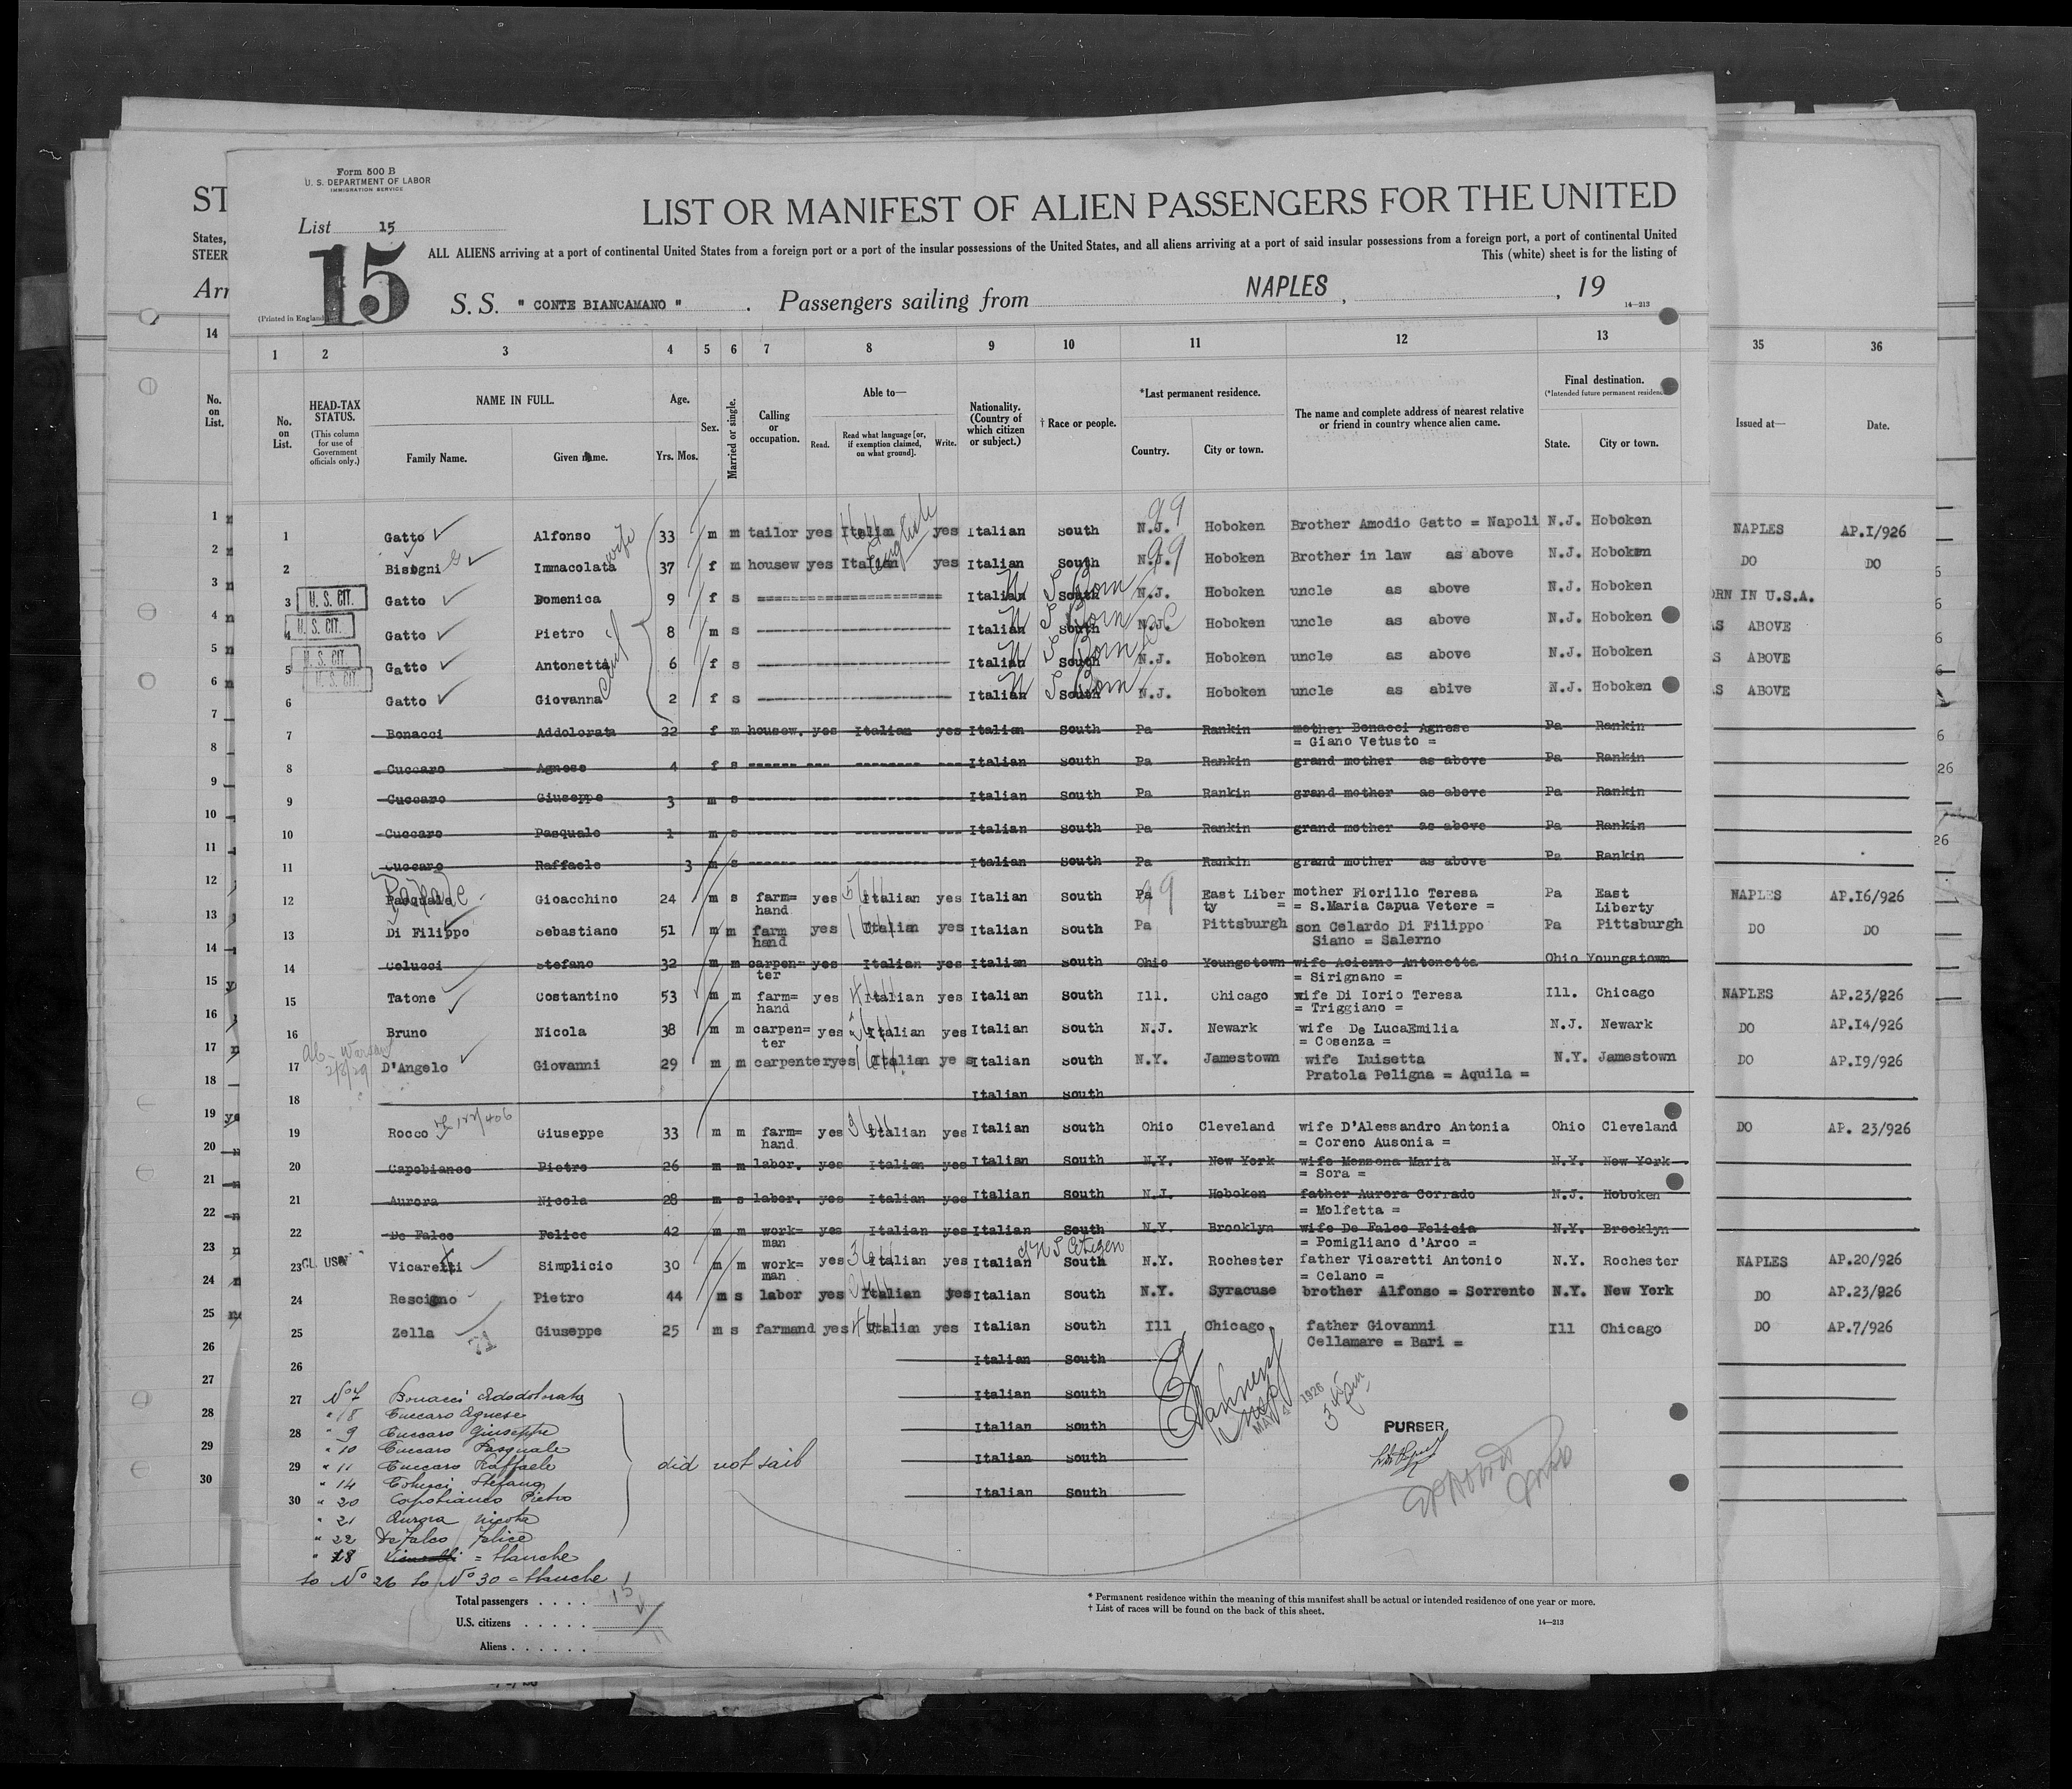 Form 500 B
U. S. DEPARTMENT OF LABOR
IMMIGRATION SERVICE
List 15
15
(Printed in England)
LIST OR MANIFEST OF ALIEN PASSENGERS FOR THE UNITED
ALL ALIENS arriving at a port of continental United States from a foreign port or a port of the insular possessions of the United States, and all aliens arriving at a port of said insular possessions from a foreign port, a port of continental United
This (white) sheet is for the listing of
S. S. " CONTE BIANCAMANO " . Passengers sailing from NAPLES , , 19
14—213
1 2 3 4 5 6 7 8 9 10 11 12 13 35 36
No. on List.
HEAD-TAX STATUS.
(This column for use of Government officials only.)
NAME IN FULL.
Family Name. Given name.
Age.
Yrs. Mos.
Sex.
Married or single.
Calling or occupation.
Able to—
Read. Read what language [or, if exemption claimed, on what ground]. Write.
Nationality. (Country of which citizen or subject.)
† Race or people.
*Last permanent residence.
Country. City or town.
The name and complete address of nearest relative or friend in country whence alien came.
Final destination.
(*Intended future permanent residence
State. City or town.
Issued at— Date.
1 Gatto Alfonso wife 33 m m tailor yes Italian English yes Italian South N.J. 99 Hoboken Brother Amodio Gatto = Napoli N.J. Hoboken NAPLES AP.I/926
2 Bisogni Immacolata 37 f m housew yes Italian yes Italian South N.J. 99 Hoboken Brother in law as above N.J. Hoboken DO DO
3 U. S. CIT. Gatto Domenica 9 f s Italian South U S Born N.J. Hoboken uncle as above N.J. Hoboken ORN IN U.S.A.
4 U. S. CIT. Gatto Pietro 8 m s Italian South U S Born N.J. Hoboken uncle as above N.J. Hoboken AS ABOVE
5 U. S. CIT. Gatto Antonetta 6 f s Italian South U S Born N.J. Hoboken uncle as above N.J. Hoboken S ABOVE
6 U. S. CIT. Gatto Giovanna 2 f s Italian South U S Born N.J. Hoboken uncle as abive N.J. Hoboken AS ABOVE
7 Bonacci Addolorata 22 f m housew. yes Italian yes Italian South Pa Rankin mother Bonacci Agnese
= Giano Vetusto = Pa Rankin
8 Cuccaro Agnese 4 f s Italian South Pa Rankin grand mother as above Pa Rankin
9 Cuccaro Giuseppe 3 m s Italian South Pa Rankin grand mother as above Pa Rankin
10 Cuccaro Pasquale 1 m s Italian South Pa Rankin grand mother as above Pa Rankin
11 Cuccaro Raffaele 3 m s Italian South Pa Rankin grand mother as above Pa Rankin
12 Pasquale Gioacchino 24 m s farm= hand yes Italian yes Italian South Pa 99 East Liber ty = mother Fiorillo Teresa
= S.Maria Capua Vetere = Pa East Liberty NAPLES AP.I6/926
13 Di Filippo Sebastiano 51 m m farm hand yes Italian yes Italian South Pa Pittsburgh son Celardo Di Filippo
Siano = Salerno Pa Pittsburgh DO DO
14 Colucci Stefano 32 m m carpen= ter yes Italian yes Italian South Ohio Youngstown wife Acierno Antonetta
= Sirignano = Ohio Youngstown
15 Tatone Costantino 53 m m farm= hand yes Italian yes Italian South Ill. Chicago wife Di Iorio Teresa
= Triggiano = Ill. Chicago NAPLES AP.23/926
16 Bruno Nicola 38 m m carpen= ter yes Italian yes Italian South N.J. Newark wife De LucaEmilia
= Cosenza = N.J. Newark DO AP.I4/926
17 D'Angelo Giovanni 29 m m carpenter yes Italian ye s Italian South N.Y. Jamestown wife Luisetta
Pratola Peligna = Aquila = N.Y. Jamestown DO AP.I9/926
18 Italian South
19 Rocco Giuseppe 33 m m farm= hand yes Italian yes Italian South Ohio Cleveland wife D'Alessandro Antonia
= Coreno Ausonia = Ohio Cleveland DO AP. 23/926
20 Capobianco Pietro 26 m m labor. yes Italian yes Italian South N.Y. New York wife Mezzona Maria
= Sora = N.Y. New York
21 Aurora Nicola 28 m s labor. yes Italian yes Italian South N.J. Hoboken father Aurora Corrado
= Molfetta = N.J. Hoboken
22 De Falco Felice 42 m m work= man yes Italian yes Italian South N.Y. Brooklyn wife De Falco Felicia
= Pomigliano d'Arco = N.Y. Brooklyn
23 CL. USA Vicaretti Simplicio 30 m m work= man yes Italian yes Italian South U S Citizen N.Y. Rochester father Vicaretti Antonio
= Celano = N.Y. Rochester NAPLES AP.20/926
24 Rescigno Pietro 44 m s labor yes Italian yes Italian South N.Y. Syracuse brother Alfonso = Sorrento N.Y. New York DO AP.23/926
25 Zella Giuseppe 25 m s farmand yes Italian yes Italian South Ill Chicago father Giovanni
Cellamare = Bari = Ill Chicago DO AP.7/926
26 Italian South
27 Italian South
28 Italian South
29 Italian South
30 Italian South
No 7 Bonacci Addolorata
" 8 Cuccaro Agnese
" 9 Cuccaro Giuseppe
" 10 Cuccaro Pasquale
" 11 Cuccaro Raffaele
" 14 Colucci Stefano
" 20 Capobianco Pietro
" 21 Aurora Nicola
" 22 De Falco Felice
" 18 = blanche
to No 26 to No 30 = blanche
did not sail
MAY 1926
PURSER
Total passengers . . . . 15
U.S. citizens . . . . .
Aliens . . . . . .
* Permanent residence within the meaning of this manifest shall be actual or intended residence of one year or more.
† List of races will be found on the back of this sheet.
14—213
ST
States,
STEER
Arr
14
No. on List.